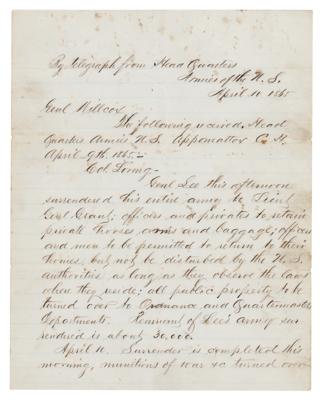 By telegraph from Head Quarters
Armies of the U. S.
April 10. 1865
Genl Willcox
The following received. Head
Quarters Armies U.S. Appomattox C. H.
April 9th. 1865.-
Col Loring-
Genl Lee this afternoon
surrendered his entire army to Lieut
Genl Grant; officers and privates to retain
private horses, arms and baggage; officers
and men to be permitted to return to their
homes, but not be disturbed by the U. S.
authorities as long as they observe the laws
where they reside; all public property to be
turned over to Ordnance and Quartermasters
Departments. Remnant of Lee's army sur-
rendered is about 30,000.
April 10. Surrender is completed this
morning, munitions of war &c turned over